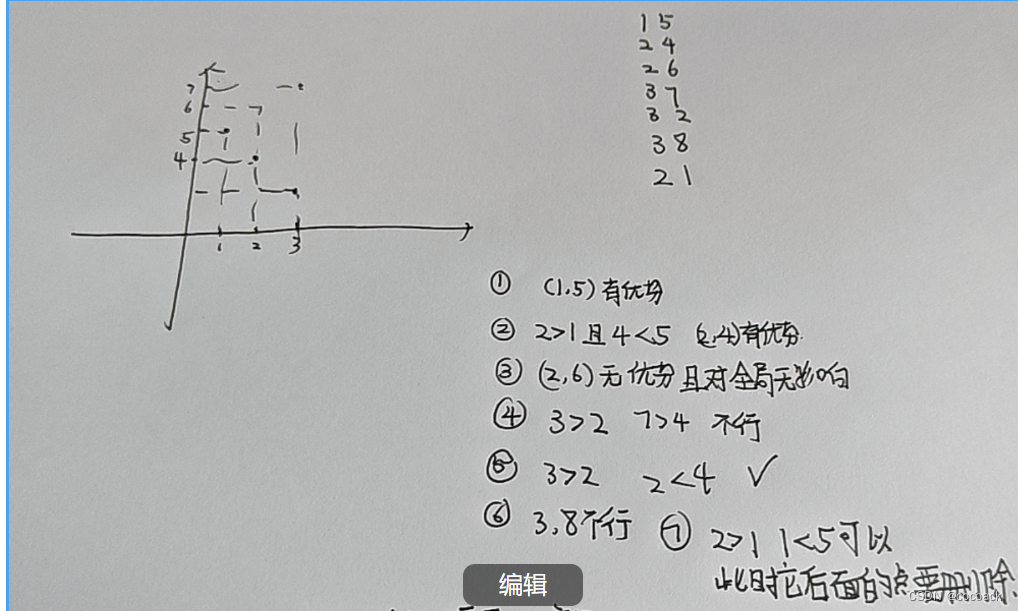 1 5
2 4
2 6
3 7
3 2
3 8
2 1
7
6
5
4
1 2 3
① (1.5)有优势
② 2>1且4<5 (2,4)有优势.
③ (2,6)无优势且对全局无影响
④ 3>2 7>4 不行
⑤ 3>2 2<4 √
⑥ 3.8不行 ⑦ 2>1 1<5可以
此时它后面的点要删除.
编辑
CSDN @cocoack